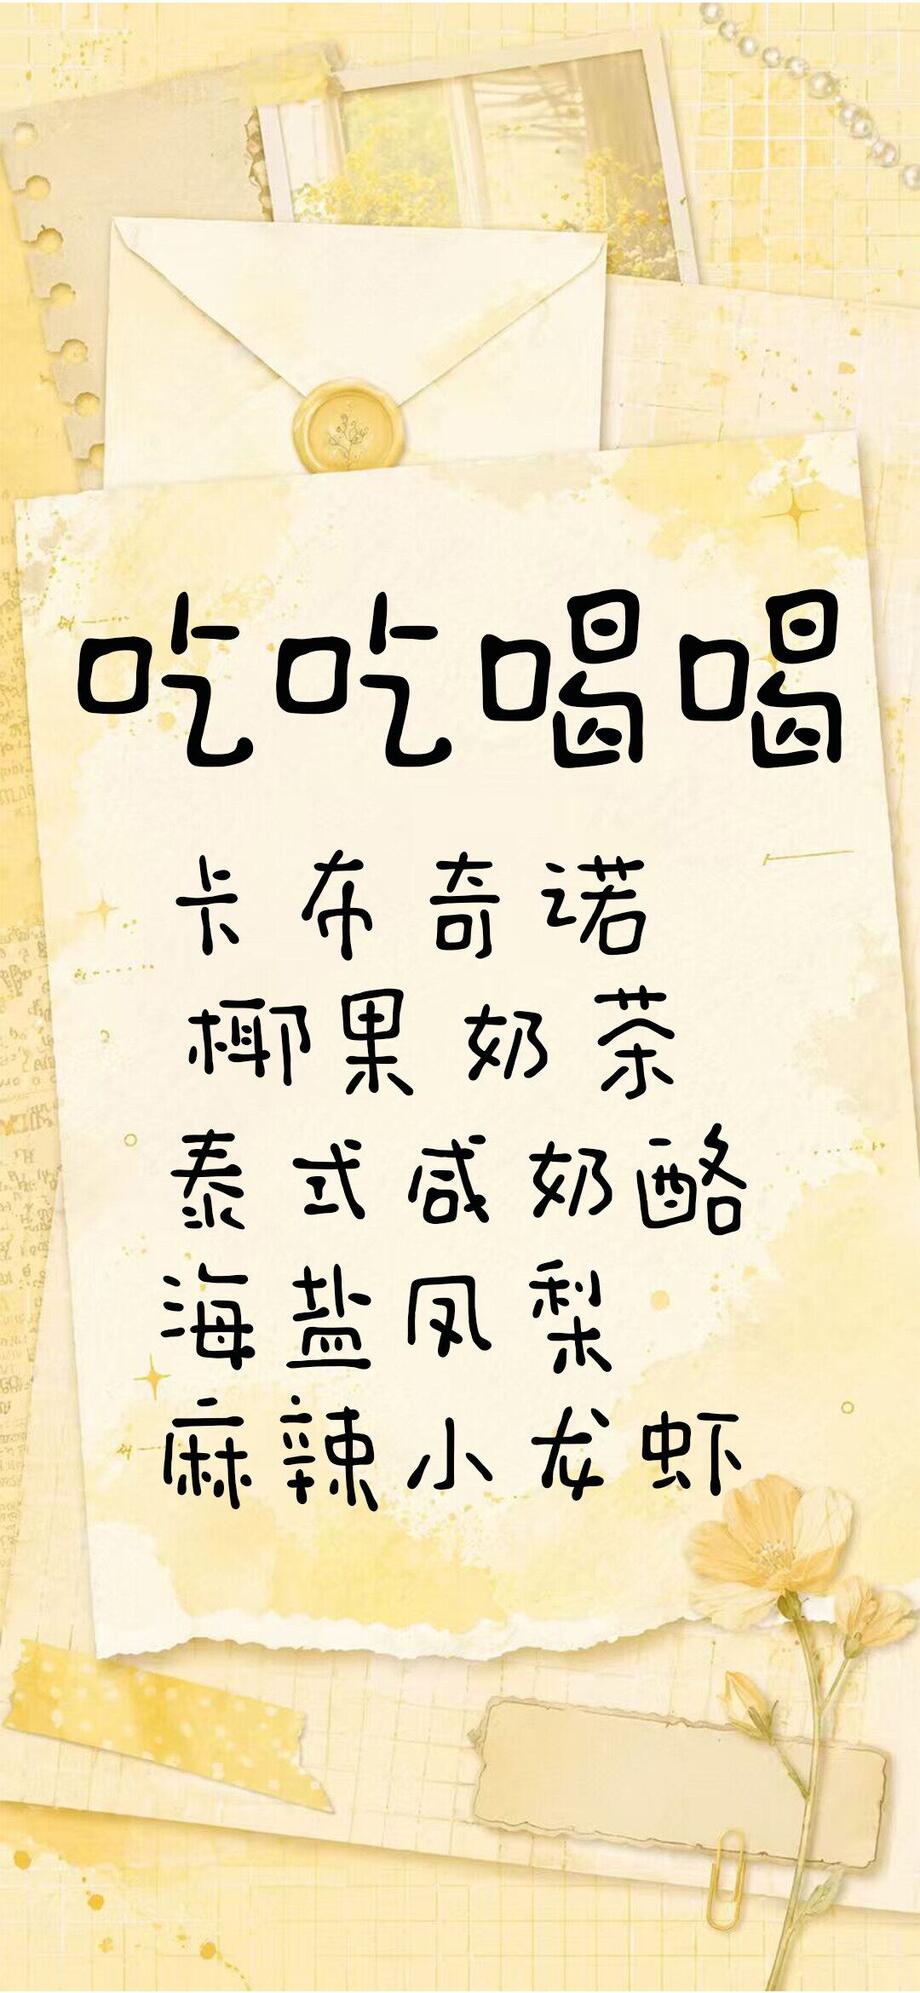 吃吃喝喝
卡布奇诺
椰果奶茶
泰式咸奶酪
海盐凤梨
麻辣小龙虾